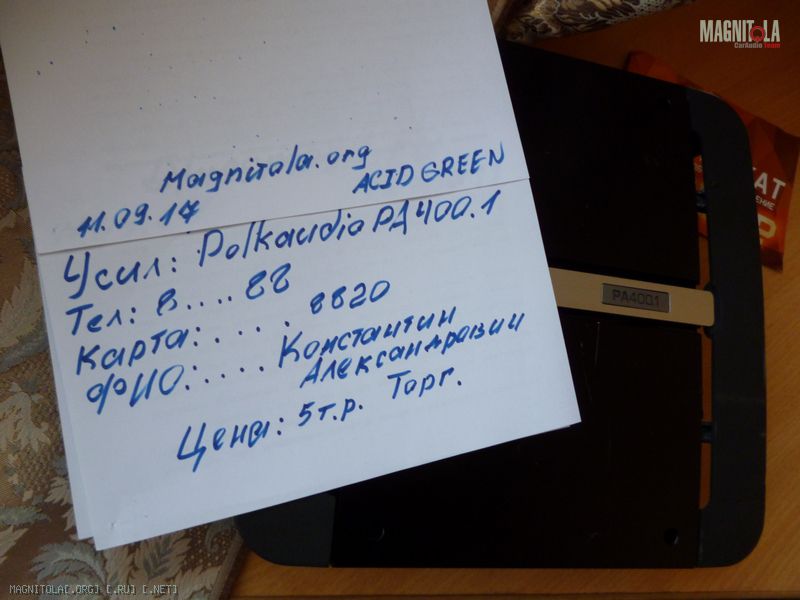 MAGNITOLA
CarAudio Team
Magnitola.org
ACID GREEN
11.09.17
Усил: Polkaudio PA400.1
Тел: 8....88
Карта:..... 8820
ФИО:..... Константин
Александрович
Цена: 5т.р. Торг.
PA400.1
MAGNITOLA[.ORG] [.RU] [.NET]